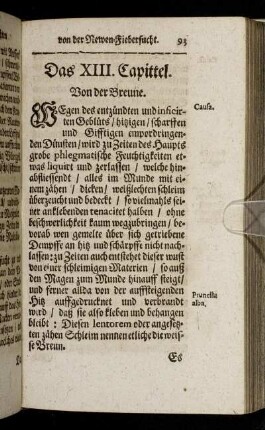 von der Newen-Fiebersucht. 93
Das XIII. Capittel.
Von der Breune.
WEgen des entzündten und inficir-
ten Geblüts / hitzigen / scharffen
und Gifftigen empordringen-
den Dünsten / wird zu Zeiten des Haupts
grobe phlegmatische Feuchtigkeiten et-
was liquirt und zerlassen / welche hin-
abfliessendt / alles im Munde mit ei-
nem zähen / dicken / weißlechten schleim
überzeucht und bedeckt / sovielmahls sei-
ner anklebenden tenacitet halben / ohne
beschwerlichkeit kaum wegzubringen / be-
vorab wen gemelte über sich getriebene
Dempffe an hitz und schärpffe nicht nach-
lassen: zu Zeiten auch entstehet dieser wust
von einer schleimigen Materien / so auß
den Magen zum Munde hinauff steigt /
und ferner allda von der auffsteigenden
Hitz auffgedrucknet und verbrandt
wird / daß sie also kleben und behangen
bleibt : Diesen lentorem oder angesetz-
ten zähen Schleim nennen etliche die weis-
se Breun.
Es
Causa.
Prunella
alba.